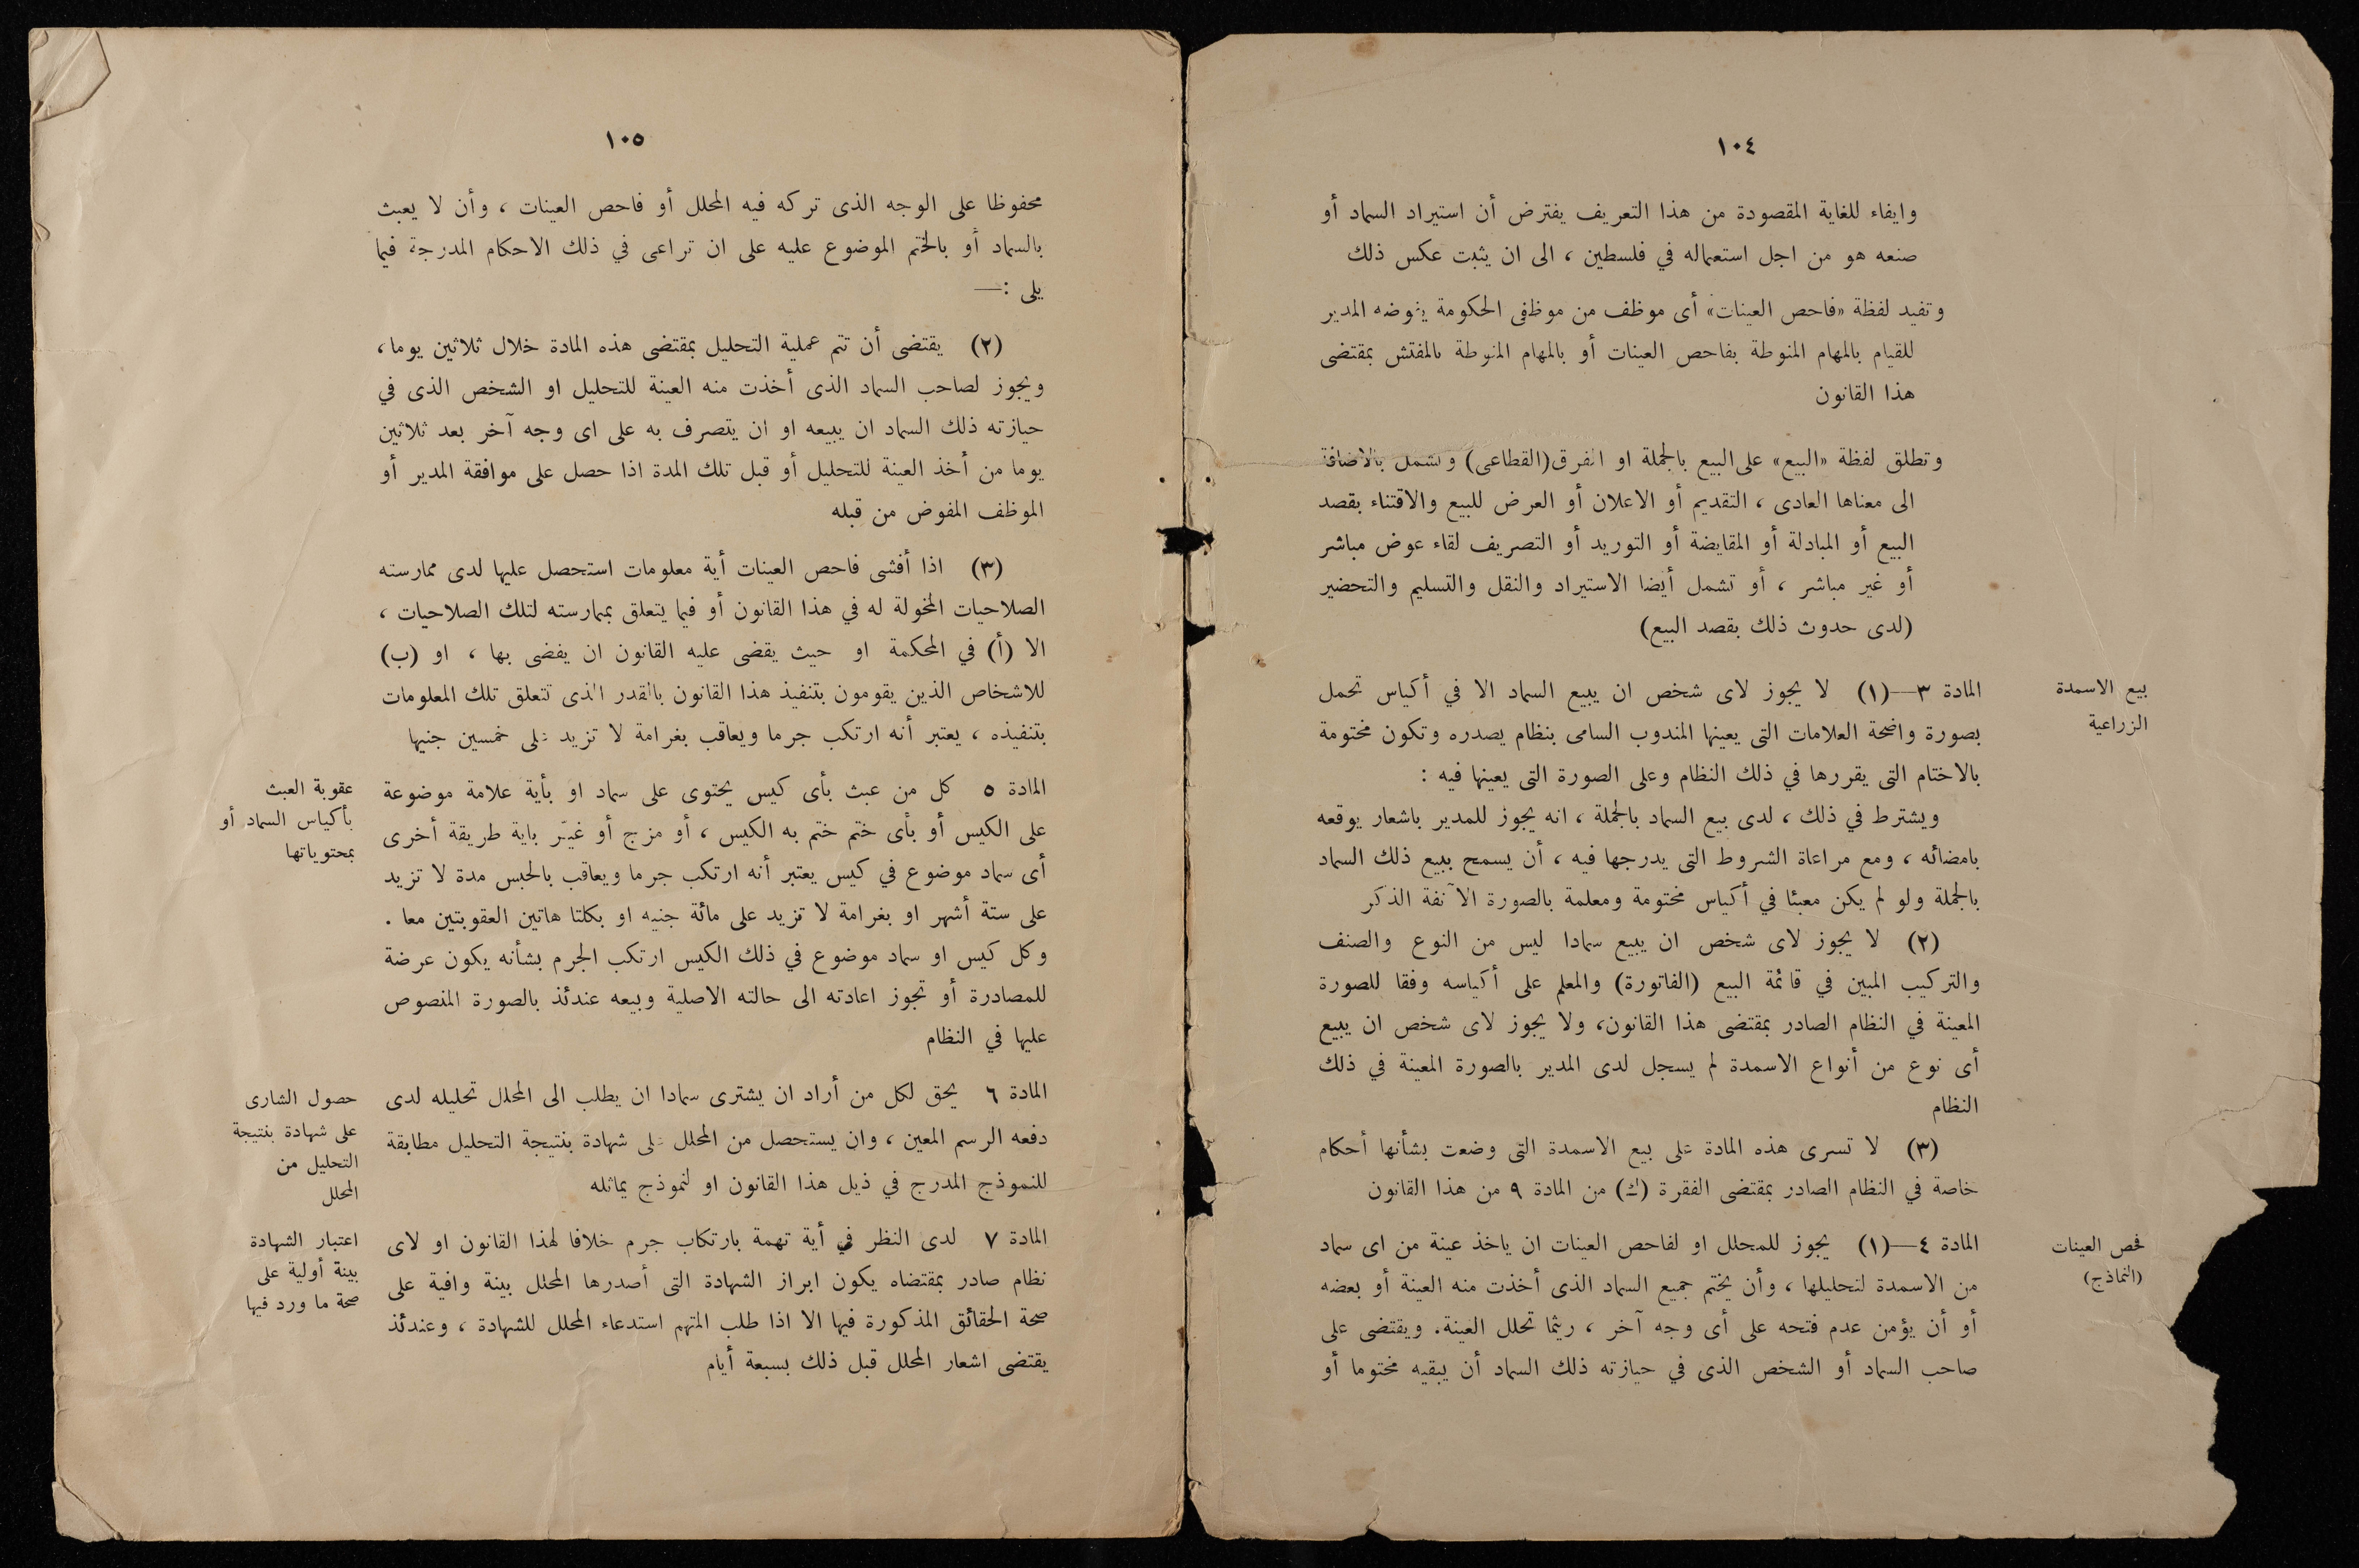 ١٠٤
وايفاء للغاية المقصودة من هذا التعريف يفترض أن استيراد السماد أو
صنعه هو من اجل استعماله في فلسطين ، الى ان يثبت عكس ذلك
وتفيد لفظة «فاحص العينات» أى موظف من موظفى الحكومة يفوضه المدير
للقيام بالمهام المنوطة بفاحص العينات أو بالمهام المنوطة بالمفتش بمقتضى
هذا القانون
وتطلق لفظة «البيع» على البيع بالجملة او المفرق (القطاعى) وتشمل بالاضافة
الى معناها العادى ، التقديم أو الاعلان أو العرض للبيع والاقتناء بقصد
البيع أو المبادلة أو المقايضة أو التوريد أو التصريف لقاء عوض مباشر
أو غير مباشر ، أو تشمل أيضا الاستيراد والنقل والتسليم والتحضير
(لدى حدوث ذلك بقصد البيع)
بيع الاسمدة
الزراعية
المادة ٣—(١) لا يجوز لاى شخص ان يبيع السماد الا في أكياس تحمل
بصورة واضحة العلامات التى يعينها المندوب السامى بنظام يصدره وتكون مختومة
بالاختام التى يقررها في ذلك النظام وعلى الصورة التى يعينها فيه :
ويشترط في ذلك ، لدى بيع السماد بالجملة ، انه يجوز للمدير باشعار يوقعه
بامضائه ، ومع مراعاة الشروط التى يدرجها فيه ، أن يسمح ببيع ذلك السماد
بالجملة ولو لم يكن معبئا في أكياس مختومة ومعلمة بالصورة الآنفة الذكر
(٢) لا يجوز لاى شخص ان يبيع سمادا ليس من النوع والصنف
والتركيب المبين في قائمة البيع (الفاتورة) والمعلم على أكياسه وفقا للصورة
المعينة في النظام الصادر بمقتضى هذا القانون، ولا يجوز لاى شخص ان يبيع
أى نوع من أنواع الاسمدة لم يسجل لدى المدير بالصورة المعينة في ذلك
النظام
(٣) لا تسرى هذه المادة على بيع الاسمدة التى وضعت بشأنها أحكام
خاصة في النظام الصادر بمقتضى الفقرة (ك) من المادة ٩ من هذا القانون
فحص العينات
(النماذج)
المادة ٤—(١) يجوز للمحلل او لفاحص العينات ان ياخذ عينة من اى سماد
من الاسمدة لتحليلها ، وأن يختم جميع السماد الذى أخذت منه العينة أو بعضه
أو أن يؤمن عدم فتحه على أى وجه آخر ، ريثما تحلل العينة. ويقتضى على
صاحب السماد أو الشخص الذى في حيازته ذلك السماد أن يبقيه مختوما أو
١٠٥
محفوظا على الوجه الذى تركه فيه المحلل أو فاحص العينات ، وأن لا يعبث
بالسماد أو بالختم الموضوع عليه على ان تراعى في ذلك الاحكام المدرجة فيما
يلى :—
(٢) يقتضى أن تتم عملية التحليل بمقتضى هذه المادة خلال ثلاثين يوما،
ويجوز لصاحب السماد الذى أخذت منه العينة للتحليل او الشخص الذى في
حيازته ذلك السماد ان يبيعه او ان يتصرف به على اى وجه آخر بعد ثلاثين
يوما من أخذ العينة للتحليل أو قبل تلك المدة اذا حصل على موافقة المدير أو
الموظف المفوض من قبله
(٣) اذا أفشى فاحص العينات أية معلومات استحصل عليها لدى ممارسته
الصلاحيات المخولة له في هذا القانون أو فيما يتعلق بممارسته لتلك الصلاحيات ،
الا (أ) في المحكمة او حيث يقضى عليه القانون ان يفضى بها ، او (ب)
للاشخاص الذين يقومون بتنفيذ هذا القانون بالقدر الذى تتعلق تلك المعلومات
بتنفيذه ، يعتبر أنه ارتكب جرما ويعاقب بغرامة لا تزيد على خمسين جنيها
عقوبة العبث
بأكياس السماد أو
بمحتوياتها
المادة ٥ كل من عبث بأى كيس يحتوى على سماد او بأية علامة موضوعة
على الكيس أو بأى ختم ختم به الكيس ، أو مزج أو غيّر باية طريقة أخرى
أى سماد موضوع في كيس يعتبر أنه ارتكب جرما ويعاقب بالحبس مدة لا تزيد
على ستة أشهر او بغرامة لا تزيد على مائة جنيه او بكلتا هاتين العقوبتين معا .
وكل كيس او سماد موضوع في ذلك الكيس ارتكب الجرم بشأنه يكون عرضة
للمصادرة أو تجوز اعادته الى حالته الاصلية وبيعه عندئذ بالصورة المنصوص
عليها في النظام
حصول الشارى
على شهادة بنتيجة
التحليل من
المحلل
المادة ٦ يحق لكل من أراد ان يشترى سمادا ان يطلب الى المحلل تحليله لدى
دفعه الرسم المعين ، وان يستحصل من المحلل على شهادة بنتيجة التحليل مطابقة
للنموذج المدرج في ذيل هذا القانون او لنموذج يماثله
اعتبار الشهادة
بينة أولية على
صحة ما ورد فيها
المادة ٧ لدى النظر في أية تهمة بارتكاب جرم خلافا لهذا القانون او لاى
نظام صادر بمقتضاه يكون ابراز الشهادة التى أصدرها المحلل بينة وافية على
صحة الحقائق المذكورة فيها الا اذا طلب المتهم استدعاء المحلل للشهادة ، وعندئذ
يقتضى اشعار المحلل قبل ذلك بسبعة أيام